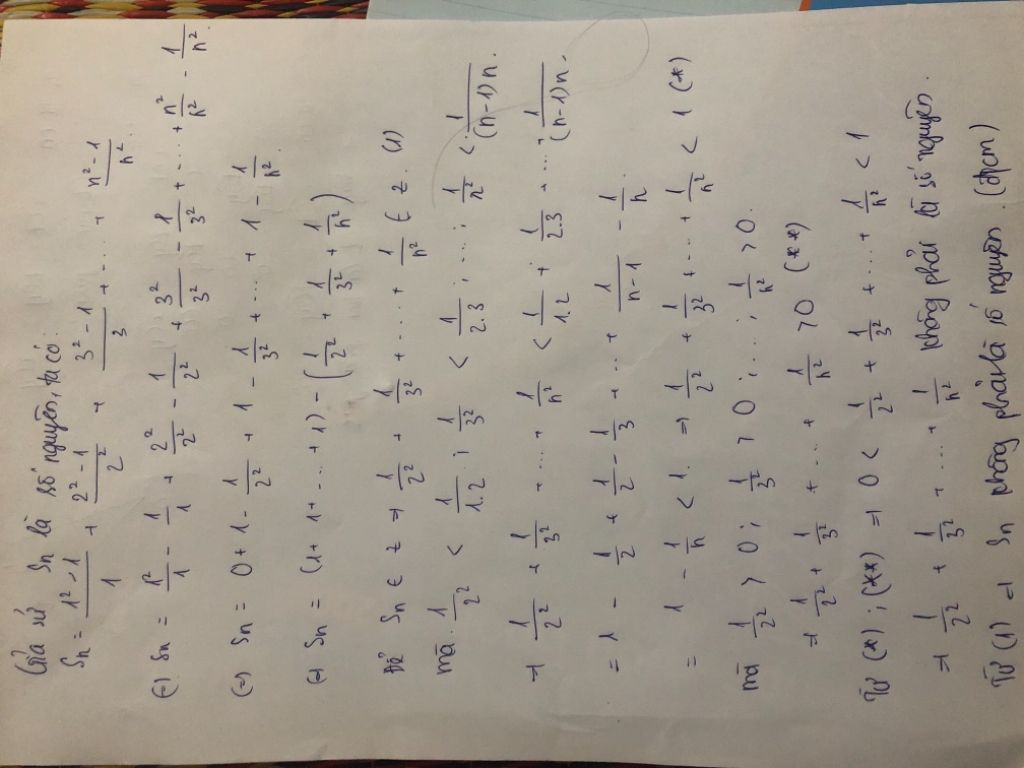 Giả sử Sn là số nguyên, ta có:
Sn = \frac{1^2-1}{1} + \frac{2^2-1}{2^2} + \frac{3^2-1}{3} + ... + \frac{n^2-1}{n^2}.
(=) Sn = \frac{1^2}{1} - \frac{1}{1} + \frac{2^2}{2^2} - \frac{1}{2^2} + \frac{3^2}{3^2} - \frac{1}{3^2} + ... + \frac{n^2}{n^2} - \frac{1}{n^2}.
(=) Sn = 0 + 1 - \frac{1}{2^2} + 1 - \frac{1}{3^2} + ... + 1 - \frac{1}{n^2}.
(=) Sn = (1+1+...+1) - (\frac{1}{2^2} + \frac{1}{3^2} + \frac{1}{n^2})
Để Sn ∈ z ⇒ \frac{1}{2^2} + \frac{1}{3^2} + .... + \frac{1}{n^2} ∈ z. (1)
mà \frac{1}{2^2} < \frac{1}{1.2} ; \frac{1}{3^2} < \frac{1}{2.3} ; ... ; \frac{1}{n^2} < \frac{1}{(n-1)n}.
⇒ \frac{1}{2^2} + \frac{1}{3^2} + ... + \frac{1}{n^2} < \frac{1}{1.2} + \frac{1}{2.3} + ... \frac{1}{(n-1)n}.
= 1 - \frac{1}{2} + \frac{1}{2} - \frac{1}{3} + ... + \frac{1}{n-1} - \frac{1}{n}.
= 1 - \frac{1}{n} < 1. ⇒ \frac{1}{2^2} + \frac{1}{3^2} + ... + \frac{1}{n^2} < 1 (*)
mà \frac{1}{2^2} > 0 ; \frac{1}{3^2} > 0 ; ... ; \frac{1}{n^2} > 0.
⇒ \frac{1}{2^2} + \frac{1}{3^2} + ... + \frac{1}{n^2} > 0 (**)
Từ (*) ; (**) ⇒ 0 < \frac{1}{2^2} + \frac{1}{3^2} + ... + \frac{1}{n^2} < 1
⇒ \frac{1}{2^2} + \frac{1}{3^2} + .... + \frac{1}{n^2} không phải là số nguyên.
Từ (1) ⇒ Sn không phải là số nguyên. (đpcm)